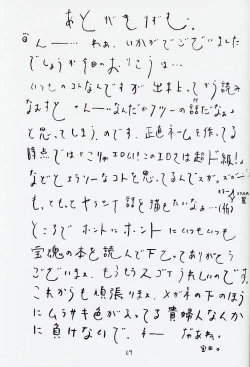 あとがきすも。
ん——… わぁ、いかがでございました
でしょうか今回のおりこうは…
いつものコトなんですが 出来上ってから読み
なおすと 、んーなんだかフツーの話だなぁ、
と思ってしまうのです。正直ネームを作ってる
時点では「こりゃエロい!このエロさは超ド級!」
などとエラソーなコトを思ってるんですが。
もっともっとヤラシイ話を描きたいなぁ…(祈)
ところで ホントに ホントに いつもいつも
宝魂の本を読んで下さってありがとう
ございまス、もうもうスゴクうれしいのです。
これからも頑張りまス、メガネの下のほう
にムラサキ色が入ってる貴婦人なんか
に負けないで、ネー だぁね。
69